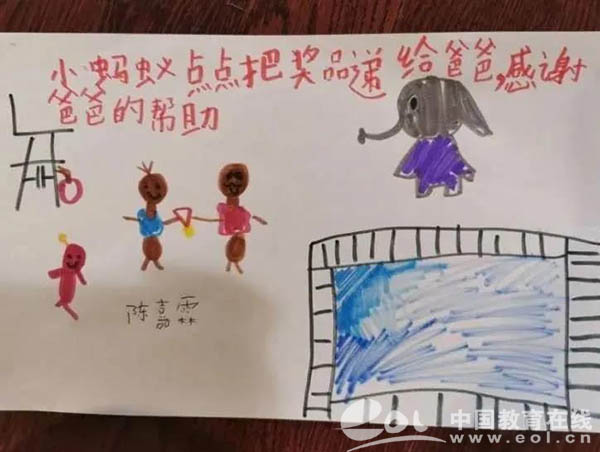 小蚂蚁点点把奖品递给爸爸,感谢
爸爸的帮助
陈嘉霖
eol 中国教育在线
www.eol.cn